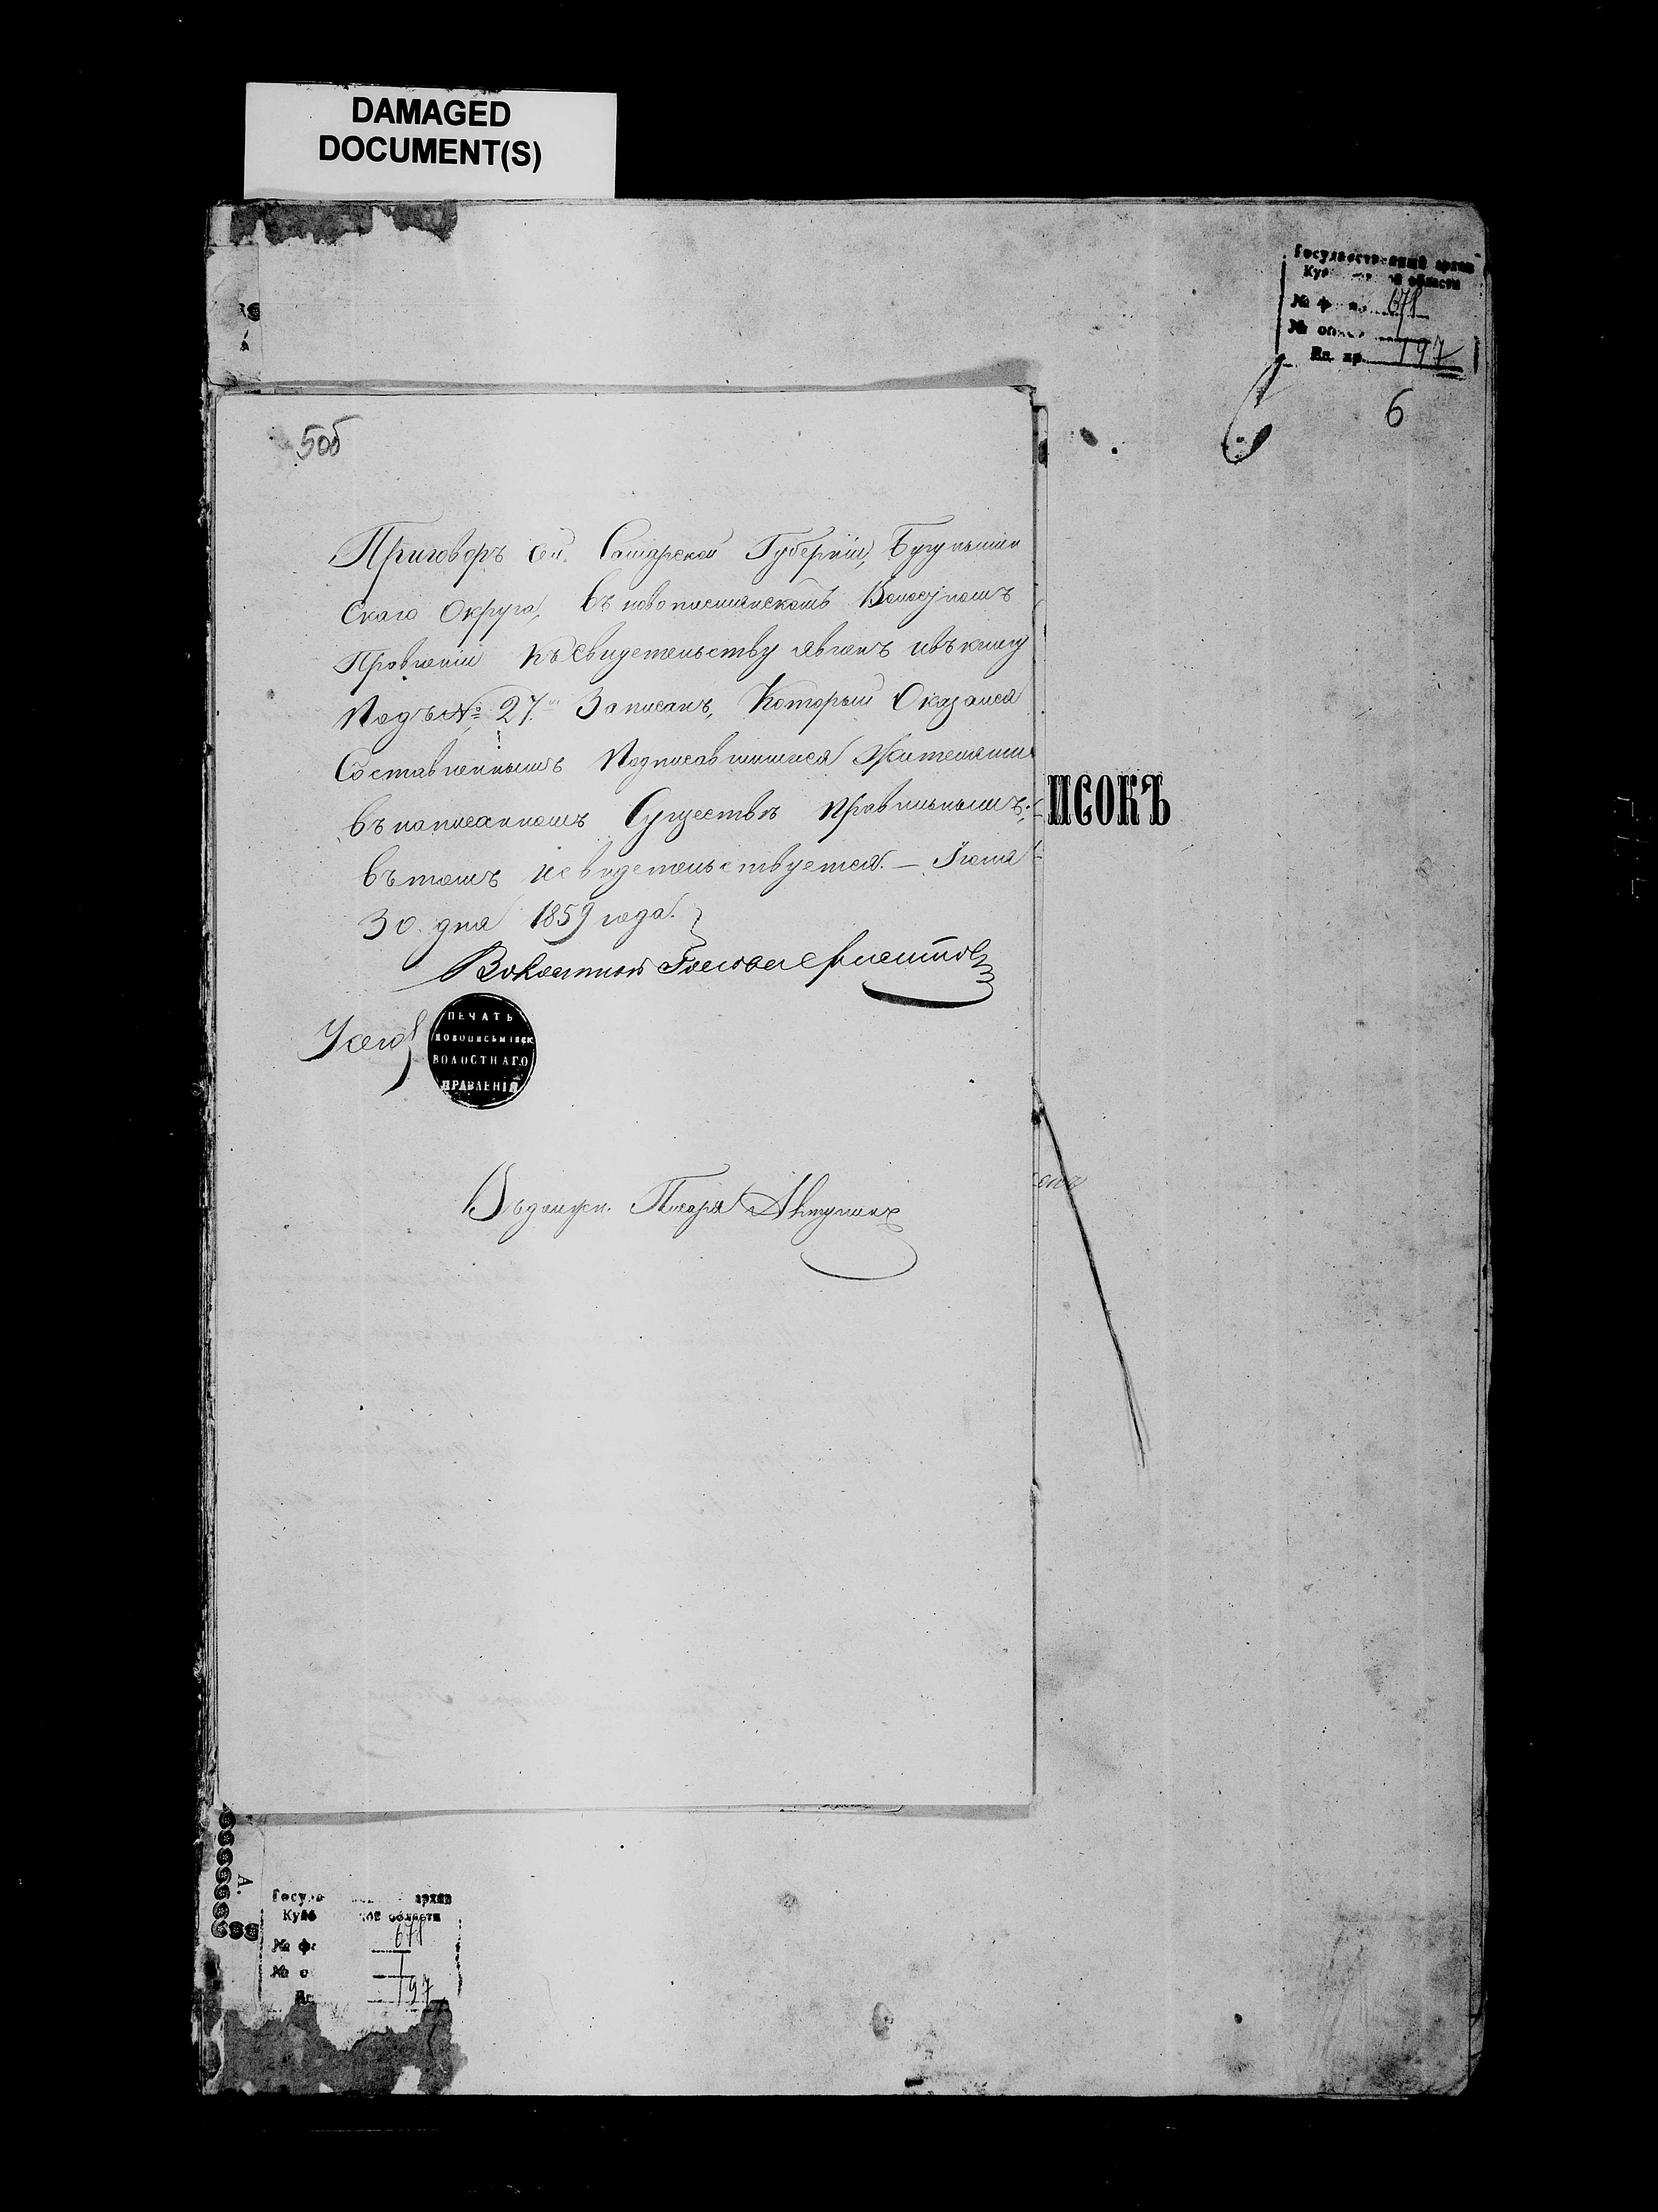 DAMAGED
DOCUMENT(S)
Государственный архив
Куй области
№ ф 678
№ оп
Ед. хр. 197
6
6
50б
Приговоръ сей Самарской Губерніи, Бугульмин
скаго Округа, въ новописмянскомъ Волостномъ
Правленіи къ Свидетельству явленъ ивъ книгу
Подъ № 27 Записанъ, Который Оказался
Составленнымъ Подписавшимися Жителями
въ написанномъ Существѣ правильнымъ,
въ томъ и свидетельствуется. — Іюля
30 дня 1859 года.
ИСОКЪ
Волостной Голова
ПЕЧАТЬ
НОВОПИСЬМЯНСК
ВОЛОСТНАГО
ПРАВЛЕНІЯ
Писаря
А.
Госуд архив
Куйб ой области
№ ф 678
№ о 1
Ед 197